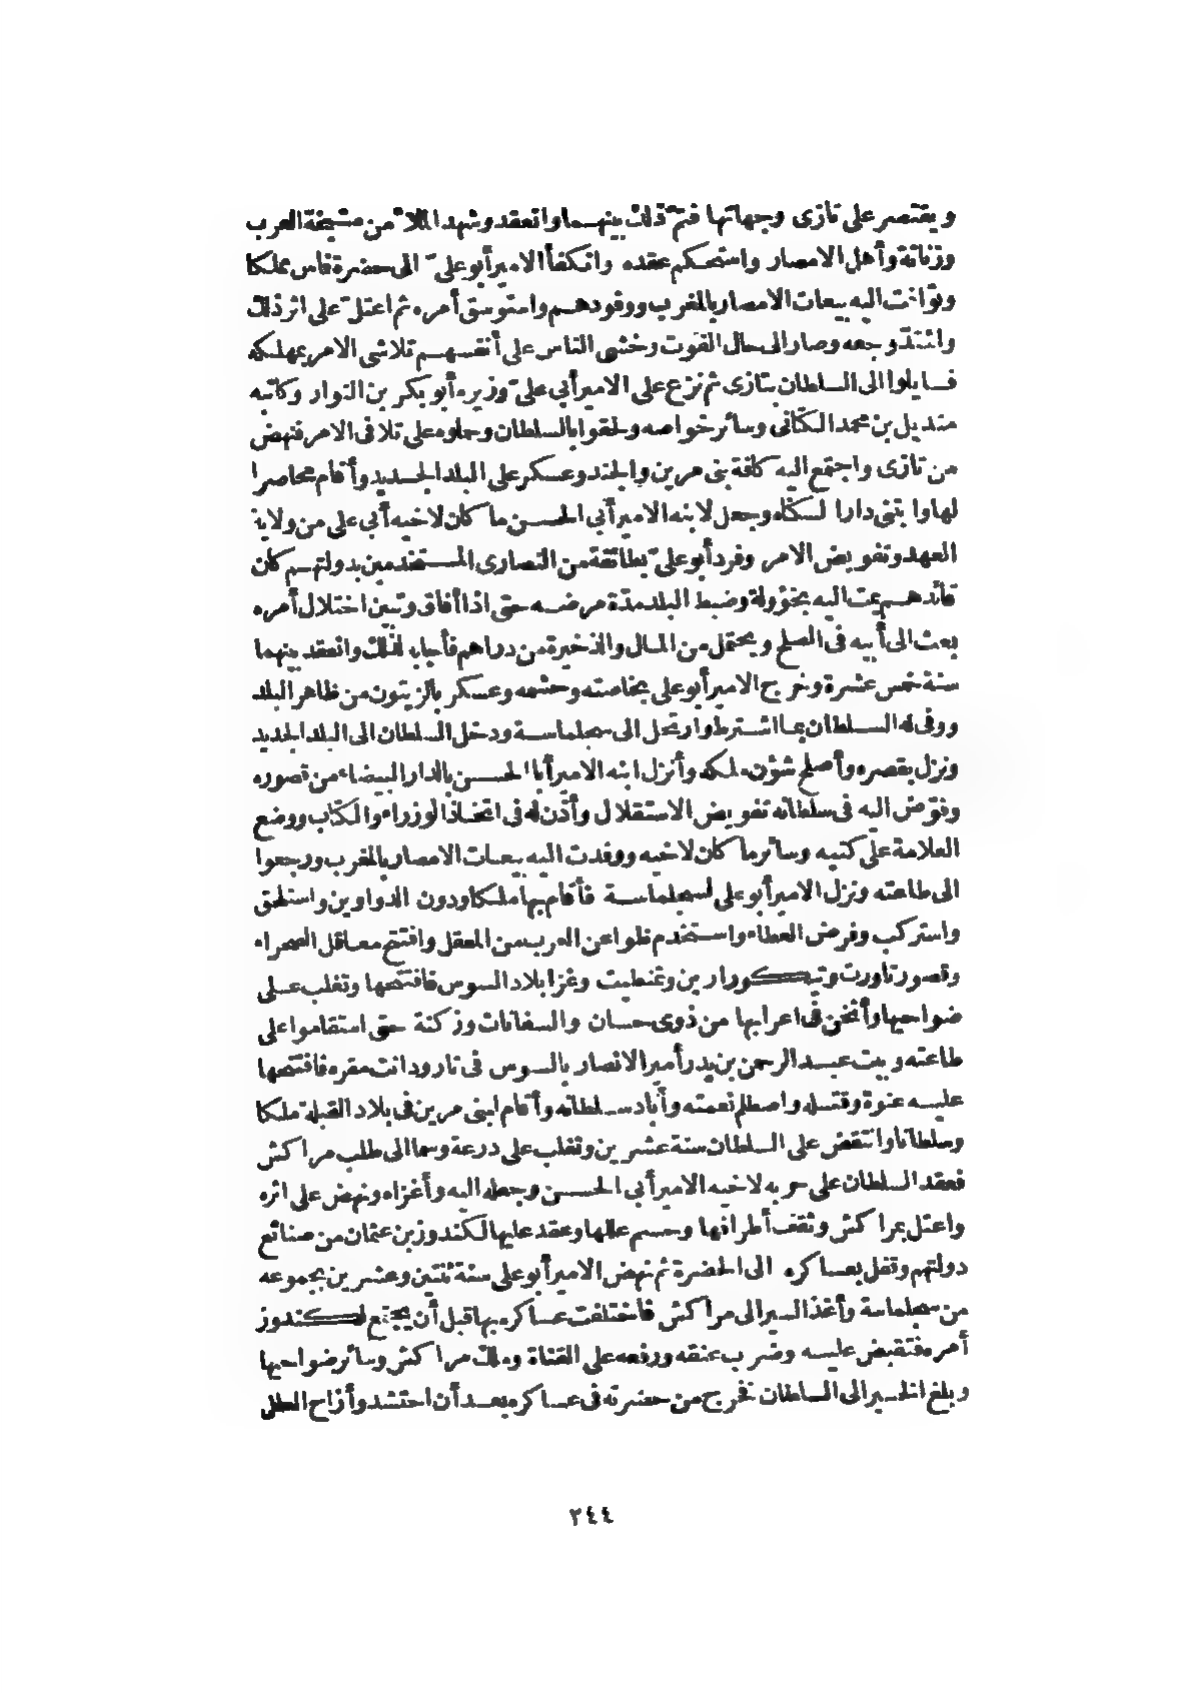 ويقتصر على تازى وجهاتها فتمّ ذلك بينهما وانعقد وشهد الملأ من مشيخة العرب
وزناتة وأهل الامصار واستحكم عقده وانكفأ الامير أبو علىّ الى حضرة فاس مملكا
وتوافت اليه بيعات الامصار بالمغرب ووفودهم واستوسق أمره ثم اعتلّ على اثر ذلك
واشتدّ وجعه وصار الى حال الموت وخشى الناس على أنفسهم تلاشى الامر بمهلكه
فسايلوا الى السلطان بتازى ثم نزع على الامير أبي علىّ وزيره أبو بكر بن النوار وكاتبه
منديل بن محمد الكتانى وسائر خواصه ولحقوا بالسلطان وحملوه على تلافى الامر فنهض
من تازى واجتمع اليه كافة بنى مرين والجند وعسكر على البلد الجديد وأقام محاصرا
لها وابتنى دارا لسكناه وجعل لابنه الامير أبي الحسن ما كان لاخيه أبي على من ولاية
العهد وتفويض الامر وفرد أبو علىّ بطائفة من النصارى المستخدمين بدولتهم كان
قائدهم يمت اليه بخؤولة وضبط البلد مدّة مرضه حتى اذا أفاق وتبين اختلال أمره
بعث الى أبيه فى الصلح ويحتمل من المال والذخيرة من دراهم فأجابه لذلك وانعقد بينهما
سنة خمس عشرة وخرج الامير أبو على بخاصته وحشمه وعسكر بالزيتون من ظاهر البلد
ووفى له السلطان بما اشترط وارتحل الى سجلماسة ودخل السلطان الى البلد الجديد
ونزل بقصره وأصلح شؤن ملكه وأنزل ابنه الامير أبا الحسن بالدار البيضاء من قصوره
وفوّض اليه فى سلطانه تفويض الاستقلال وأذن له فى اتخاذ الوزراء والكتاب ووضع
العلامة على كتبه وسائر ما كان لاخيه ووفدت اليه بيعات الامصار بالمغرب ورجعوا
الى طاعته ونزل الامير أبو على لسجلماسة فأقام بها ملكا ودون الدواوين واستلحق
واستركب وفرض العطاء واستخدم ظواعن العرب من المعقل وافتتح معاقل الصحراء
وقصور تاورت وتيكورارين وتمنطيت وغزا بلاد السوس فافتتحها وتغلب على
ضواحيها وأثخن فى اعرابها من ذوى حسان والسفانات وزكنة حتى استقاموا على
طاعته وبيت عبد الرحمن بن يدر أمير الانصار بالسوس فى تارودانت مقره فافتتحها
عليه عنوة وقتله واصطلم نعمته وأباد سلطانه وأقام لبنى مرين فى بلاد القبلة ملكا
وسلطانا وانتقض على السلطان سنة عشرين وتغلب على درعة وسما الى طلب مراكش
فعقد السلطان على حربه لاخيه الامير أبي الحسن وجعله اليه وأغزاه ونهض على اثره
واعتل بمراكش وثقف أطرافها وحسم عللها وعقد عليها لكندوز بن عثمان من صنائع
دولتهم وقفل بعساكره الى الحضرة ثم نهض الامير أبو على سنة ثنتين وعشرين بجموعه
من سجلماسة وأغذ السير الى مراكش فاختلفت عساكره بها قبل أن يجتمع لكندوز
أمره فتقبض عليه وضرب عنقه ورفعه على القناة وملك مراكش وسائر ضواحيها
وبلغ الخبر الى السلطان فخرج من حضرته فى عساكره بعد أن احتشد وأزاح العلل
٢٤٤